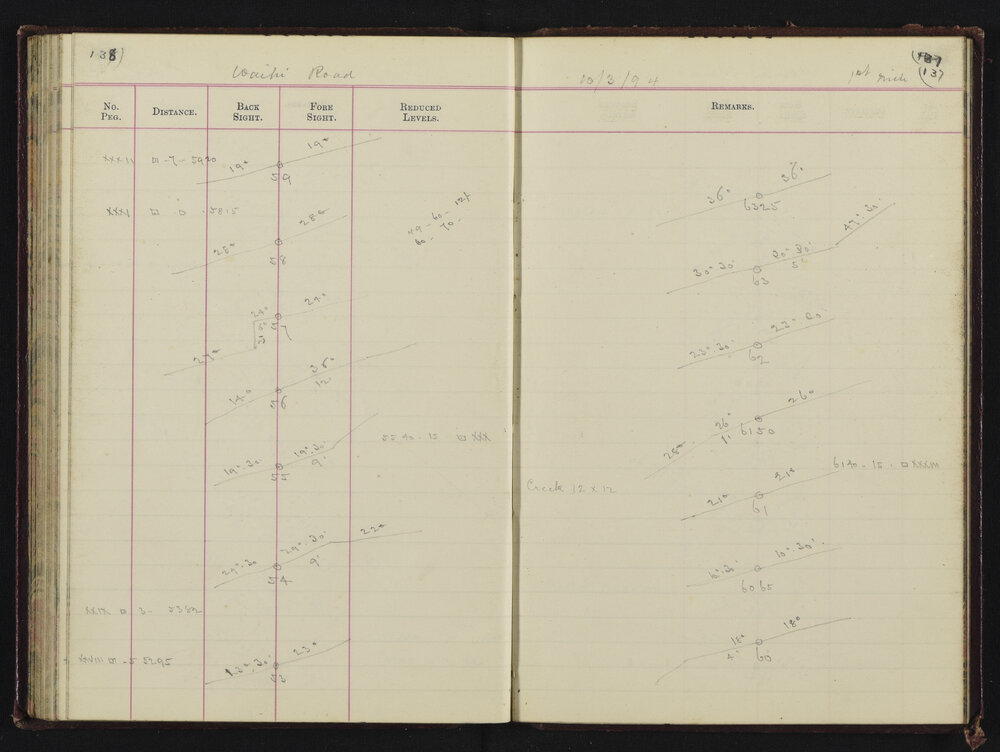 138)
Waihi Road
No. Peg.
Distance.
Back Sight.
Fore Sight.
Reduced Levels.
XXXII □ -7- 5920
19° 19°
59
XXXI □ 0 5815
28° 28°
58
49 - 60 - 127
60 - 70 -
24°
57
27°
14° 36°
12
56
19°.30' 19°.30'
9'
55
5540 - 15 □ XXX
29°.30 29°.30' 22°
9'
54
XXIX □ 3 - 5382
XXVIII □ -5 5295
23°.30' 23°
53
10/3/94
137
(137)
Remarks.
36° 36°
6325
30°.30' 30°.30' 47°.30'
5'
63
23°.30'
62
28° 26° 26°
1' 6150
6140 - 15 - □ XXXIII
Creek 12 x 12
21° 21°
61
10°.30' 10°.30'
6065
18° 18°
4' 60